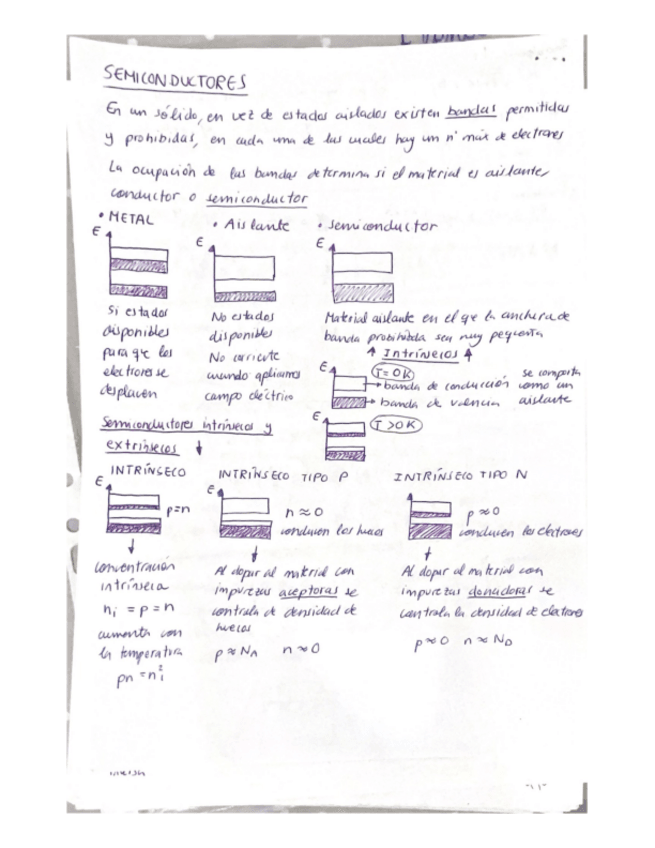 SEMICONDUCTORES
En un sólido, en vez de estados aislados existen bandas permitidas
y prohibidas, en cada una de las cuales hay un nº máx de electrones
La ocupación de las bandas determina si el material es aislante,
conductor o semiconductor
• METAL
E
Si estados
disponibles
para que los
electrones se
desplacen
• Aislante
E
No estados
disponibles
No corriente
cuando aplicamos
campo eléctrico
• Semiconductor
E
Material aislante en el que la anchura de
banda prohibida sea muy pequeña
↑ Intrínsecos ↑
E
T=0K
banda de conducción
banda de valencia
se comporta
como un
aislante
E
T>0K
Semiconductores intrínsecos y
extrínsecos ↓
INTRÍNSECO
E
p=n
↓
concentración
intrínseca
ni = p = n
aumenta con
la temperatura
pn = ni²
INTRÍNSECO TIPO P
E
n ≈ 0
conducen los huecos
↓
Al dopar al material con
impurezas aceptoras se
controla de densidad de
huecos
p ≈ NA n ≈ 0
INTRÍNSECO TIPO N
p ≈ 0
conducen los electrones
↓
Al dopar al material con
impurezas donadoras se
controla la densidad de electrones
p ≈ 0 n ≈ ND